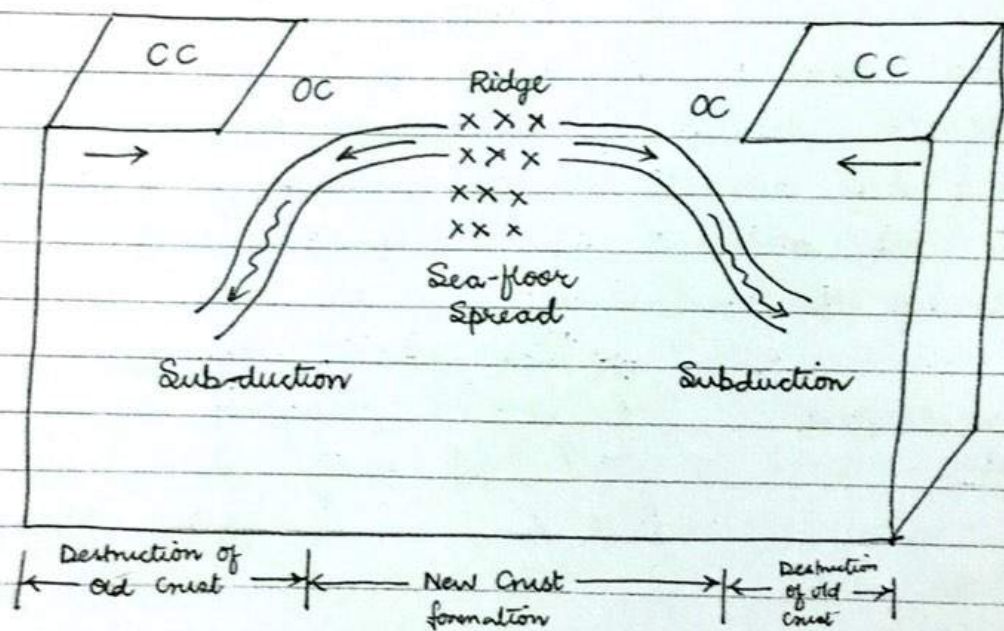 CC
OC
Ridge
OC
CC
x x x
x x x
x x x
x x x
Sea-floor
Spread
Sub-duction
Subduction
Destruction of
Old Crust
New Crust
formation
Destruction
of old
Crust